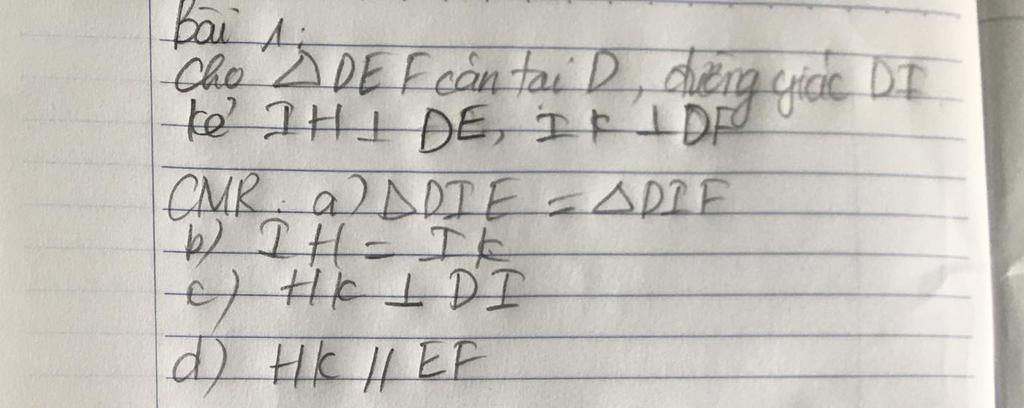 Bài 1:
Cho △DEF cân tại D, đường giác DI
kẻ IH ⊥ DE, IK ⊥ DF
CMR: a) △DIE = △DIF
b) IH = IK
c) HK ⊥ DI
d) HK // EF